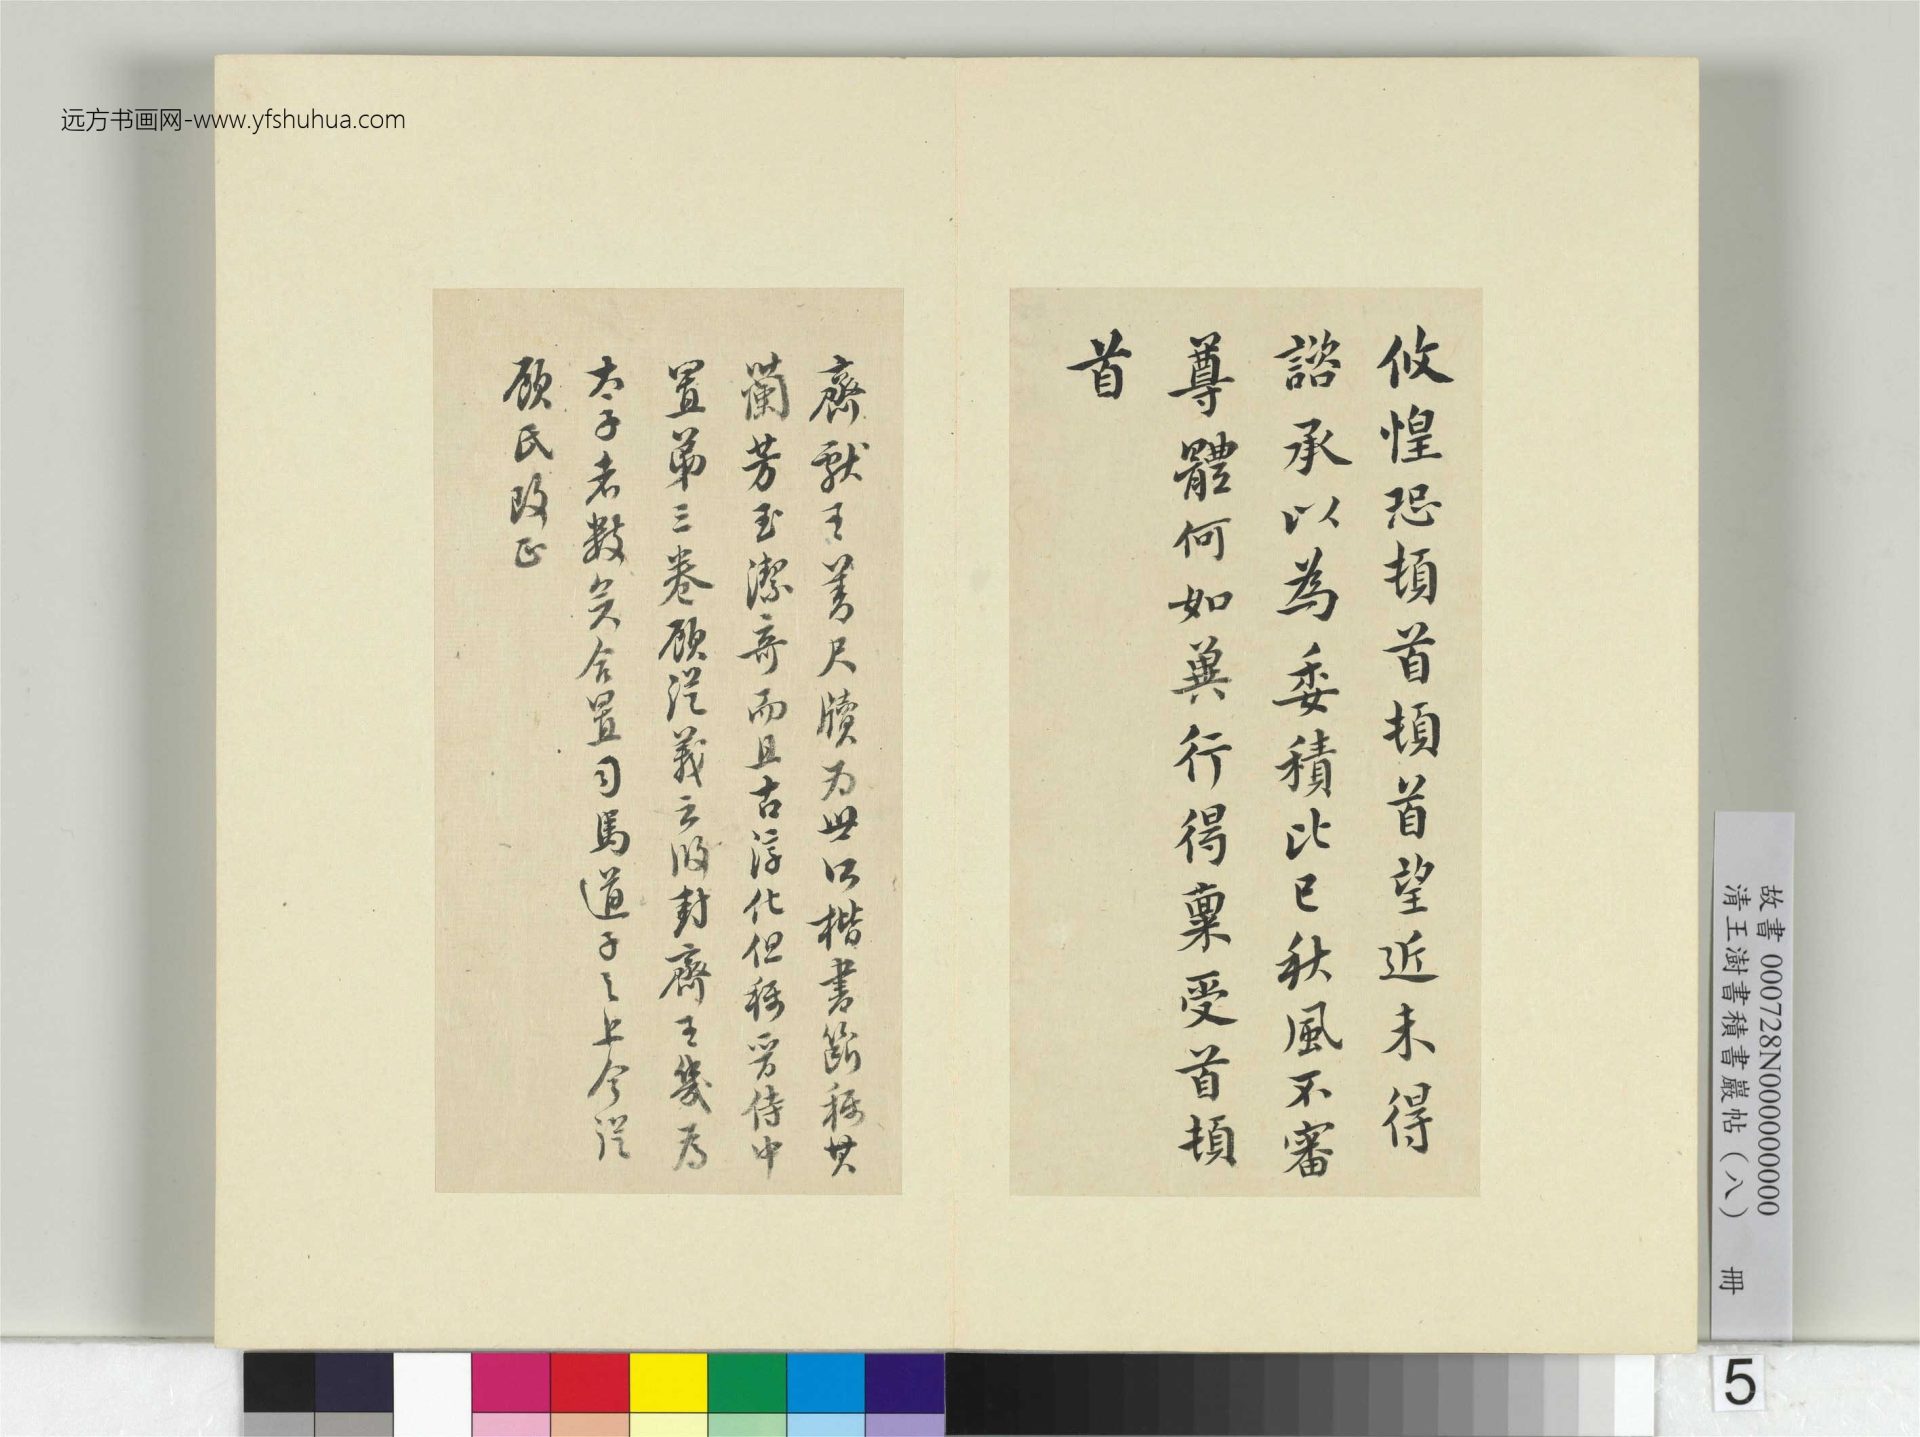 远方书画网-www.yfshuhua.com
攸惶恐頓首頓首望近未得
諮承以為委積比已秋風不審
尊體何如冀行得稟受首頓
首
齊獻王善尺牘为世所楷書斷稱其
蘭芳玉潔奇而且古淳化但稱晉侍中
置第三卷顧從義云攸封齊王幾為
太子者數矣合置司馬道子之上今從
顧氏改正
故書 000728N000000000
清王澍書積書巖帖（八） 冊
5